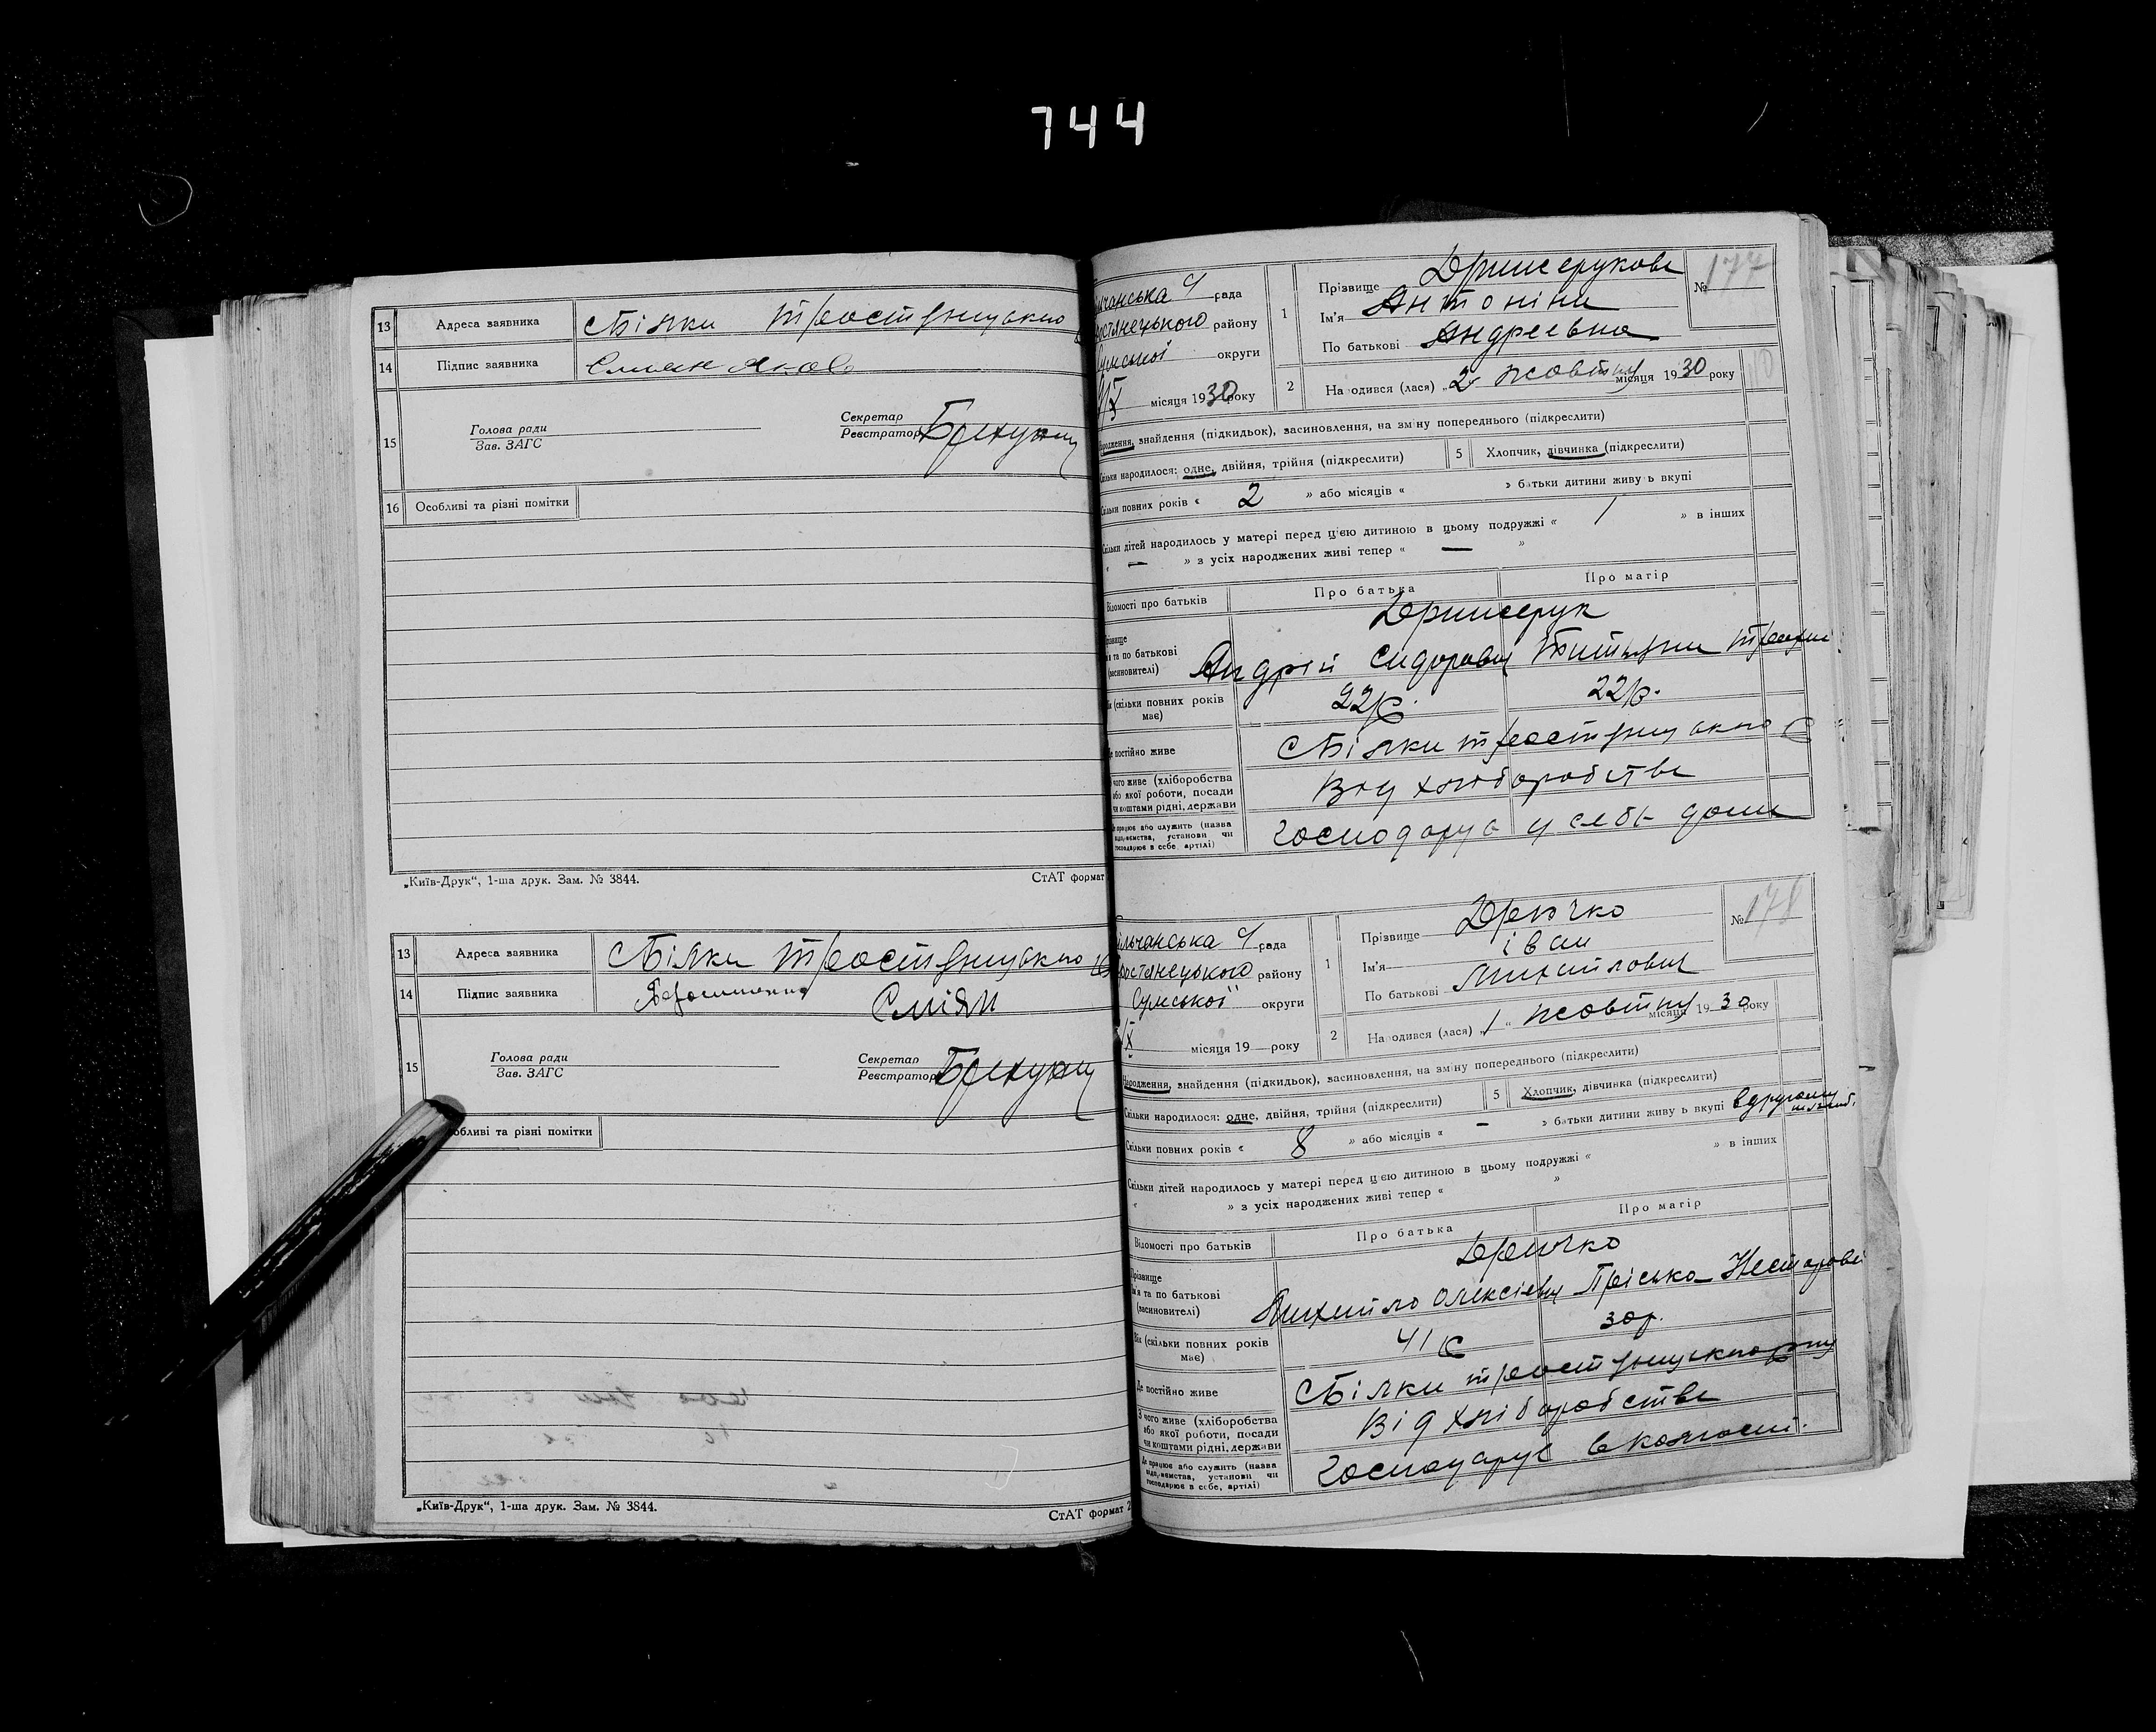 744
13 Адреса заявника с Білки Тростянецького
14 Підпис заявника
15 Голова ради
Зав. ЗАГС
Секретар
Реєстратор
16 Особливі та різні помітки
„Київ-Друк“, 1-ша друк. Зам. № 3844.
СтАТ формат
13 Адреса заявника с Білки Тростянецького
14 Підпис заявника
15 Голова ради
Зав. ЗАГС
Секретар
Реєстратор
обливі та різні помітки
„Київ-Друк“, 1-ша друк. Зам. № 3844.
СтАТ формат 2
рада
району
Сумської округи
місяця 1930 року
1 Прізвище
Ім'я Антоніна
По батькові Андреевна
№ 177
2 Народився (лася) „2“ жовтня місяця 1930 року
Народження, знайдення (підкидьок), засиновлення, на зміну попереднього (підкреслити)
Скільки народилося: одне, двійня, трійня (підкреслити) 5 Хлопчик, дівчинка (підкреслити)
Скільки повних років « 2 » або місяців « » батьки дитини живуть вкупі
Скільки дітей народилось у матері перед цією дитиною в цьому подружжі « 1 » в інших
« — » з усіх народжених живі тепер « — »
Відомості про батьків Про батька Про матір
Прізвище
ім'я та по батькові
(засиновителі)
Андрій Сидорович
Вік (скільки повних років має) 22р. 22р.
Де постійно живе с Білки Тростянецького
З чого живе (хліборобства
або якої роботи, посади
чи коштами рідні, держави
Від хліборобства
Де працює або служить (назва
підприємства, установи чи
господарює в себе, артілі)
Господарує у себе дома
рада
ростянецького району
Сумської округи
X місяця 19 року
1 Прізвище Дрючко
Ім'я Іван
По батькові Михайлович
№ 178
2 Народився (лася) „1“ жовтня місяця 1930 року
Народження, знайдення (підкидьок), засиновлення, на зміну попереднього (підкреслити)
Скільки народилося: одне, двійня, трійня (підкреслити) 5 Хлопчик, дівчинка (підкреслити)
Скільки повних років « 8 » або місяців « — » батьки дитини живуть вкупі
Скільки дітей народилось у матері перед цією дитиною в цьому подружжі « » в інших
« » з усіх народжених живі тепер « »
Відомості про батьків Про батька Про матір
Прізвище
ім'я та по батькові
(засиновителі)
Дрючко
Михайло Олексієвич Пріська Несторові
Вік (скільки повних років має) 41 р 30р.
Де постійно живе с Білки Тростянецького
З чого живе (хліборобства
або якої роботи, посади
чи коштами рідні, держави
Від хліборобства
Де працює або служить (назва
підприємства, установи чи
господарює в себе, артілі)
Господарує